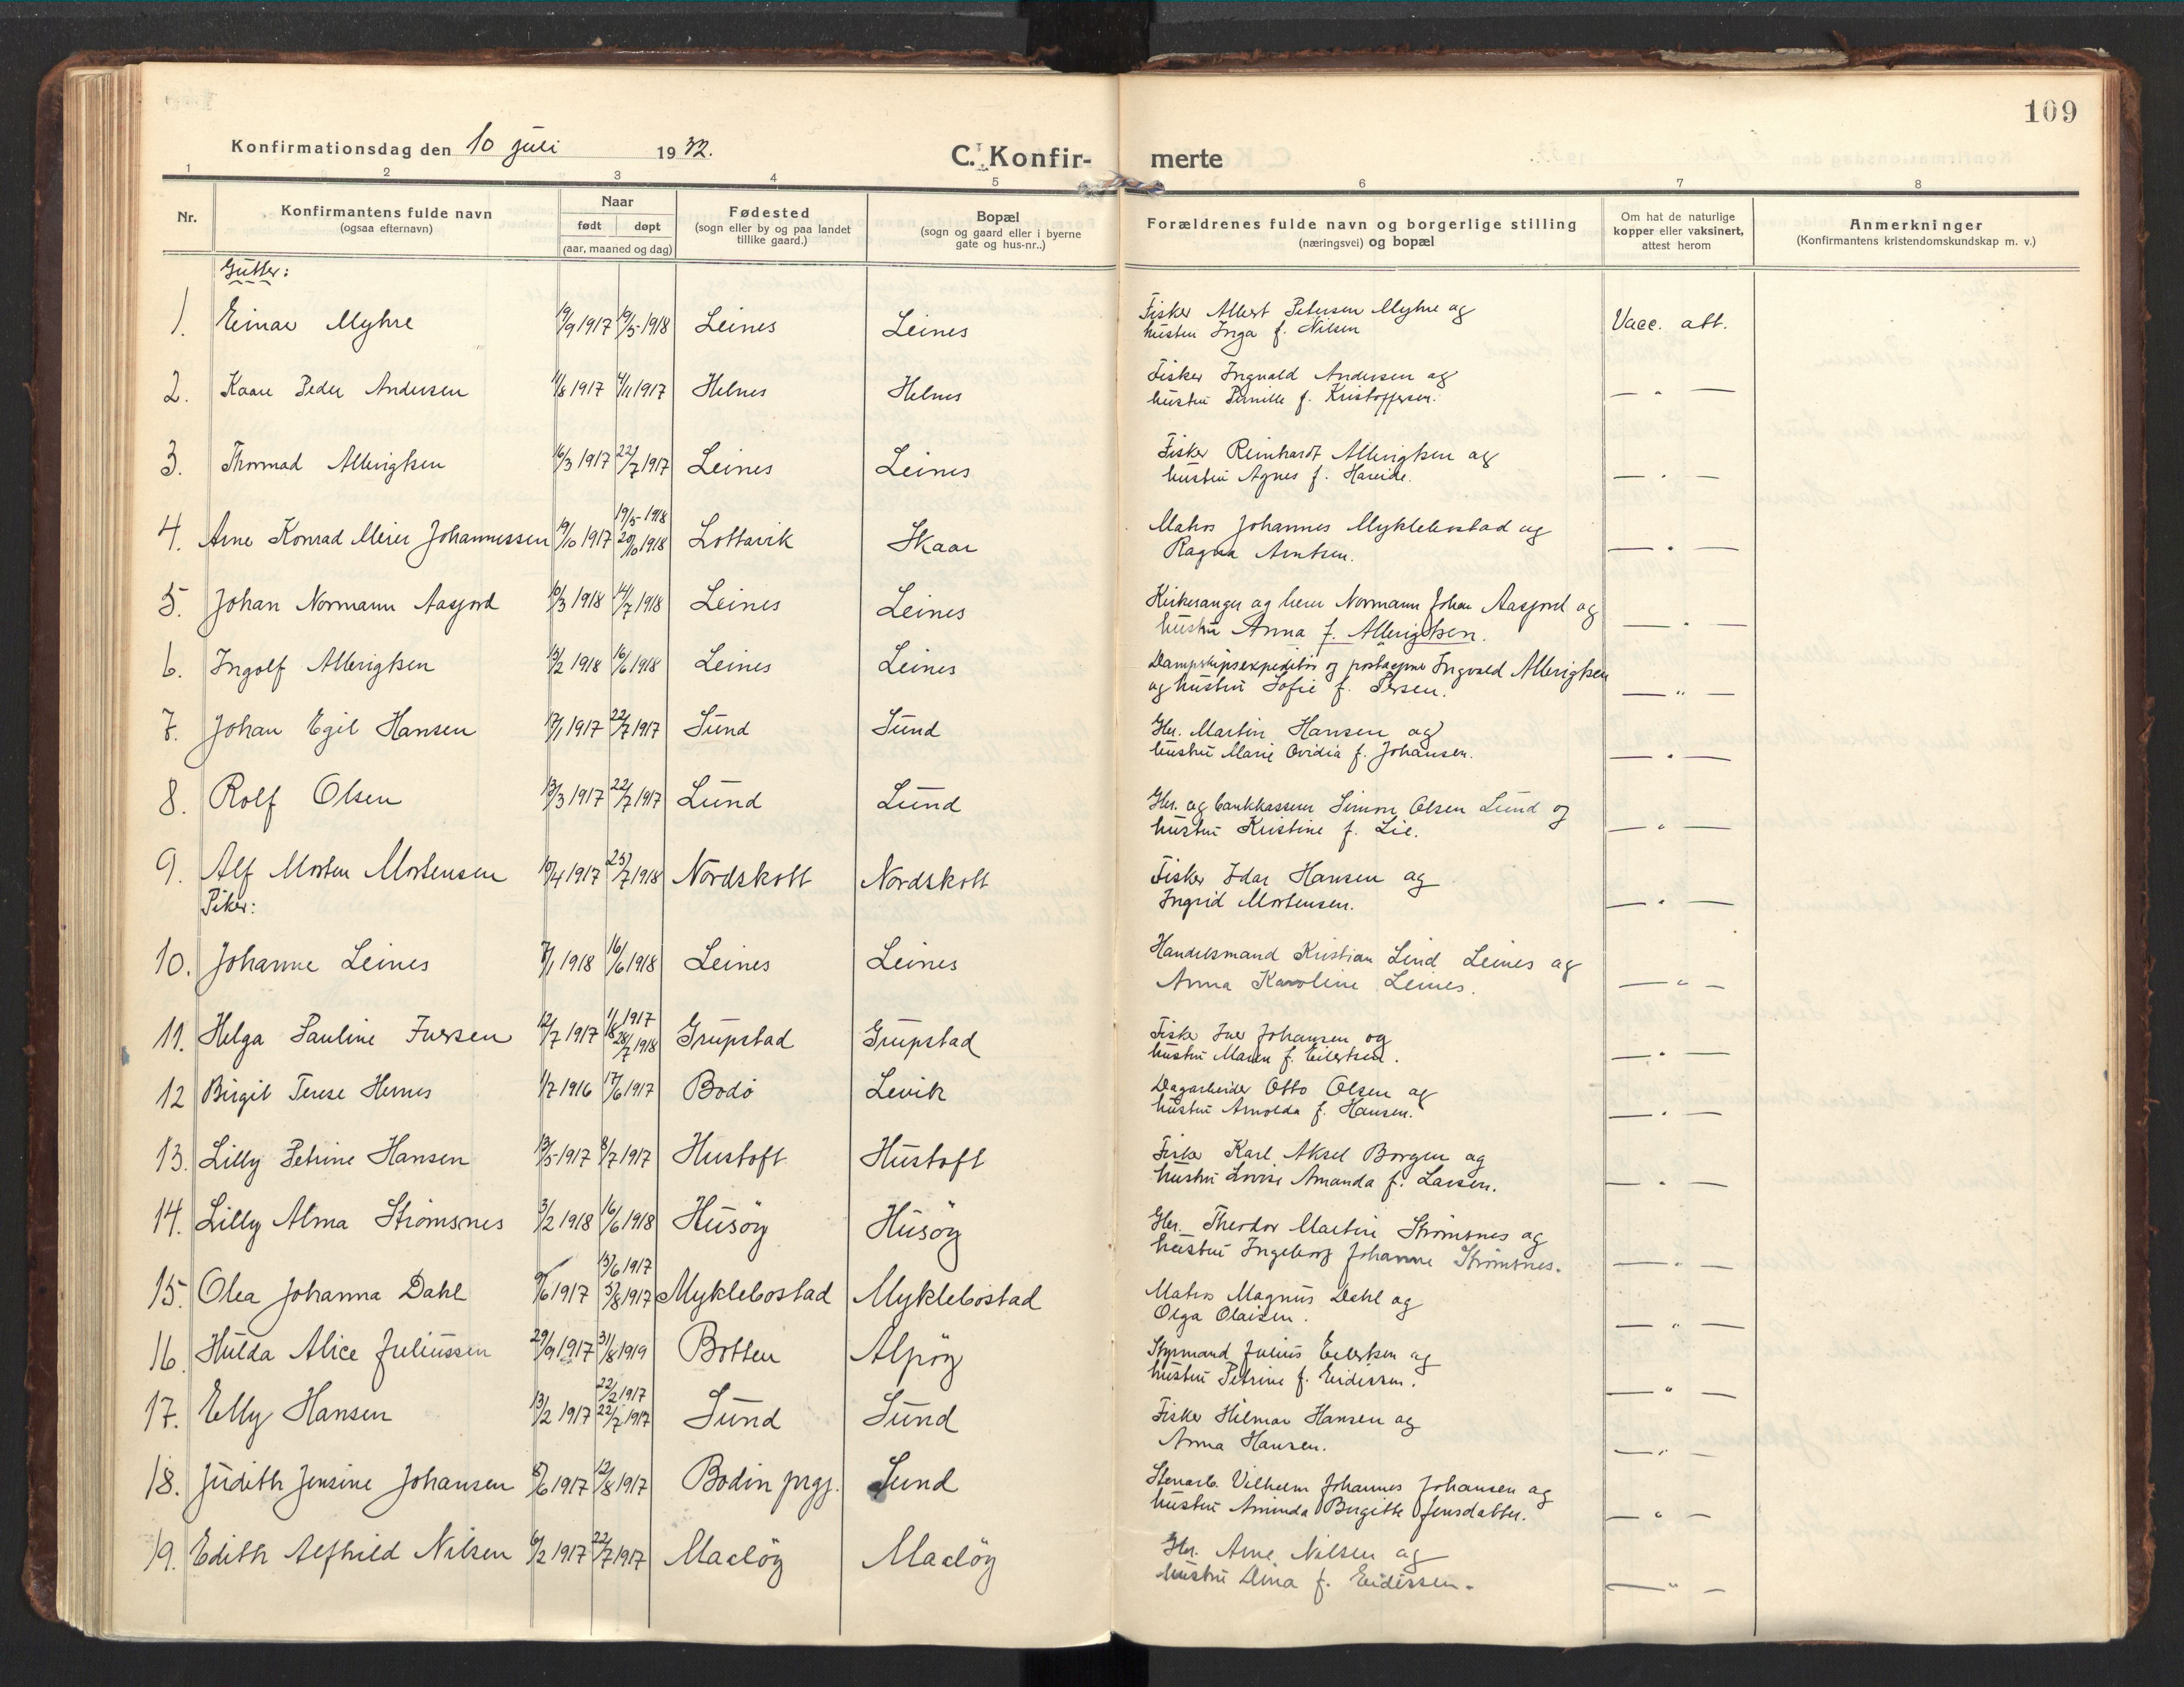 109
Konfirmationsdag den 10 juli 1932.
C. Konfir-
merte
1 2 3 4 5 6 7 8
Nr.
Konfirmantens fulde navn
(ogsaa efternavn)
Naar
født døpt
(aar, maaned og dag)
Fødested
(sogn eller by og paa landet
tillike gaard.)
Bopæl
(sogn og gaard eller i byerne
gate og hus-nr..)
Forældrenes fulde navn og borgerlige stilling
(næringsvei) og bopæl
Om hat de naturlige
kopper eller vaksinert,
attest herom
Anmerkninger
(Konfirmantens kristendomskundskap m. v.)
Gutter:
1. Einar Myhre 19/9 1917 19/5-1918 Leines Leines
Fisker Albert Petersen Myhre og
hustru Inga f. Nilsen
Vacc. att.
2. Kaare Peder Andersen 11/8 1917 4/11 1917 Helnes Helnes
Fisker Ingvald Andersen og
hustru Pernille f. Kristoffersen.
— " —
3. Thormod Allerigtsen 16/3 1917 22/7 1917 Leines Leines
Fisker Reinhardt Allerigtsen og
hustru Agnes f. Hareide.
— " —
19/5-1918
4. Arne Konrad Meier Johannessen 19/10 1917 20/10 1918 Lottavik Skaar
Matros Johannes Myklebostad og
Ragna Arntsen.
— " —
5. Johan Normann Aasjord 10/3 1918 14/7 1918 Leines Leines
Kirkesanger og lærer Normann Johan Aasjord og
hustru Anna f. Allerigtsen.
— " —
6. Ingolf Allerigtsen 13/2 1918 16/6 1918 Leines Leines
Dampskipsexpeditør og postaapner Ingvald Allerigtsen
og hustru Sofie f. Persen.
— " —
7. Johan Egil Hansen 17/1 1917 22/7 1917 Sund Sund
Gbr. Martin Hansen og
hustru Marie Ovidia f. Johansen.
— " —
8. Rolf Olsen 13/3 1917 22/7 1917 Lund Lund
Gbr. og bankkasserer Simon Olsen Lund og
hustru Kristine f. Lie.
— " —
9. Alf Morten Mortensen 10/4 1917 25/7 1918 Nordskott Nordskott
Fisker Idar Hansen og
Ingrid Mortensen.
— " —
Piker:
10. Johanne Leines 7/1 1918 16/6 1918 Leines Leines
Handelsmand Kristian Lind Leines og
Anna Karoline Leines.
— " —
11. Helga Pauline Iversen 12/7 1917 11/8 1917 28/7 1918 Grupstad Grupstad
Fisker Iver Johansen og
hustru Maren f. Eilertsen.
— " —
12 Birgit Terese Hernes 1/7 1916 17/6 1917 Bodø Levik
Dagarbeider Otto Olsen og
hustru Arnolda f. Hansen.
— " —
13. Lilly Petrine Hansen 13/5-1917 8/7 1917 Hustoft Hustoft
Fisker Karl Aksel Borgen og
hustru Lovise Amanda f. Larsen.
— " —
14. Lilly Alma Strømsnes 3/2 1918 16/6 1918 Husöy Husöy
Gbr. Theodor Martin Strømsnes og
hustru Ingeborg Johanne Strømsnes.
— " —
13/6 1917
15. Olea Johanna Dahl 9/6 1917 5/8 1917 Myklebostad Myklebostad
Matros Magnus Dahl og
Olga Olaisen.
— " —
16. Hulda Alice Juliussen 29/9 1917 31/8 1919 Botten Alpöy
Styrmand Julius Eilertsen og
hustru Petrine f. Eidissen.
— " —
22/2 1917
17. Elly Hansen 13/2 1917 22/7 1917 Sund Sund
Fisker Hilmar Hansen og
Anna Hansen.
— " —
18. Judith Jensine Johansen 8/6 1917 12/8 1917 Bodin prgj. Sund
Stenarb. Vilhelm Johannes Johansen og
hustru Aminda Birgitte Jensdatter.
— " —
19. Edith Alfhild Nilsen 6/2 1917 22/7 1917 Maaløy Maaløy
Gbr. Arne Nilsen og
hustru Dina f. Eidissen.
— " —